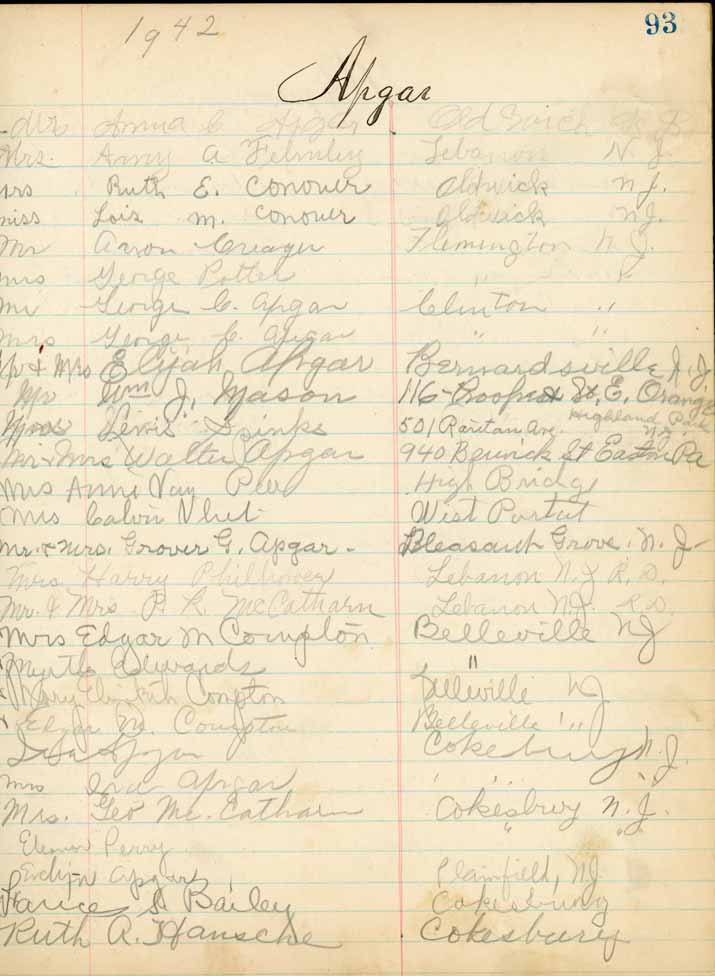 1942
93
Apgar
Mrs Anna C Apgar Oldwick N. J.
Mrs. Amy A Felmley Lebanon N. J.
Mrs Ruth E. Conover Oldwick N J.
Miss Lois M. Conover Oldwick N J.
Mr Aaron Creager Flemington N. J.
Mrs George Potter " "
Mr George C. Apgar Clinton "
Mrs George C. Apgar " "
Mr & Mrs Elijah Apgar Bernardsville N. J.
Mr Wm J. Mason 116 Prospect St, E. Orange
Lewis Spinks 501 Raritan Ave. Highland Park N.J.
Mr & Mrs Walter Apgar 940 Berwick St Easton Pa
Mrs Anne Van High Bridge
Mrs Calvin West Portal
Mr. & Mrs. Grover G. Apgar - Pleasant Grove. N. J-
Mrs Harry Philhower Lebanon N. J R. D.
Mr. & Mrs P. R. McCatharn Lebanon N.J. R.D.
Mrs Edgar M Compton Belleville NJ
Myrtle Edwards "
Mary Elizabeth Compton Belleville NJ
Edgar M. Compton Belleville " "
Ira Apgar Cokesbury N. J.
Mrs Ira Apgar " "
Mrs. Geo Mc. Catharn Cokesbury N. J.
Eleanor Perry " "
Evelyn Apgar Plainfield, N.J.
S Bailey Cokesbury
Ruth A. Hansche Cokesbury